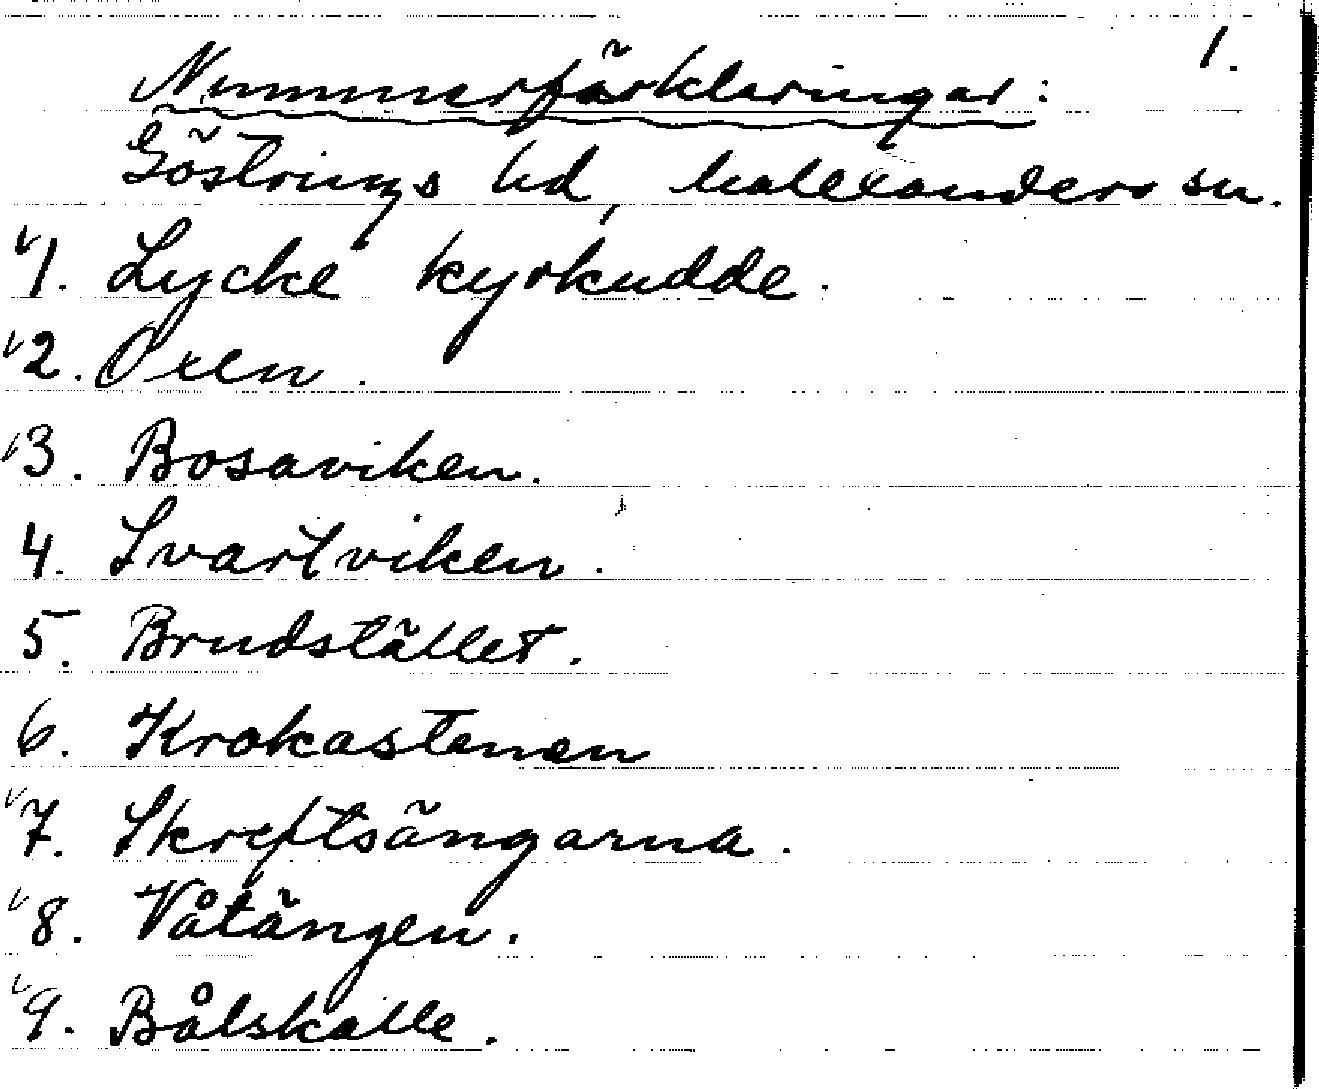 1.
Nummerförklaringar:
Göstrings hd, Malexanders sn.
1. Lycke kyrkudde.
2. Oxen.
3. Bosaviken.
4. Svartviken.
5. Brudstället.
6. Krokastenen
7. Skreftsängarna.
8. Våtängen.
9. Bålskalle.